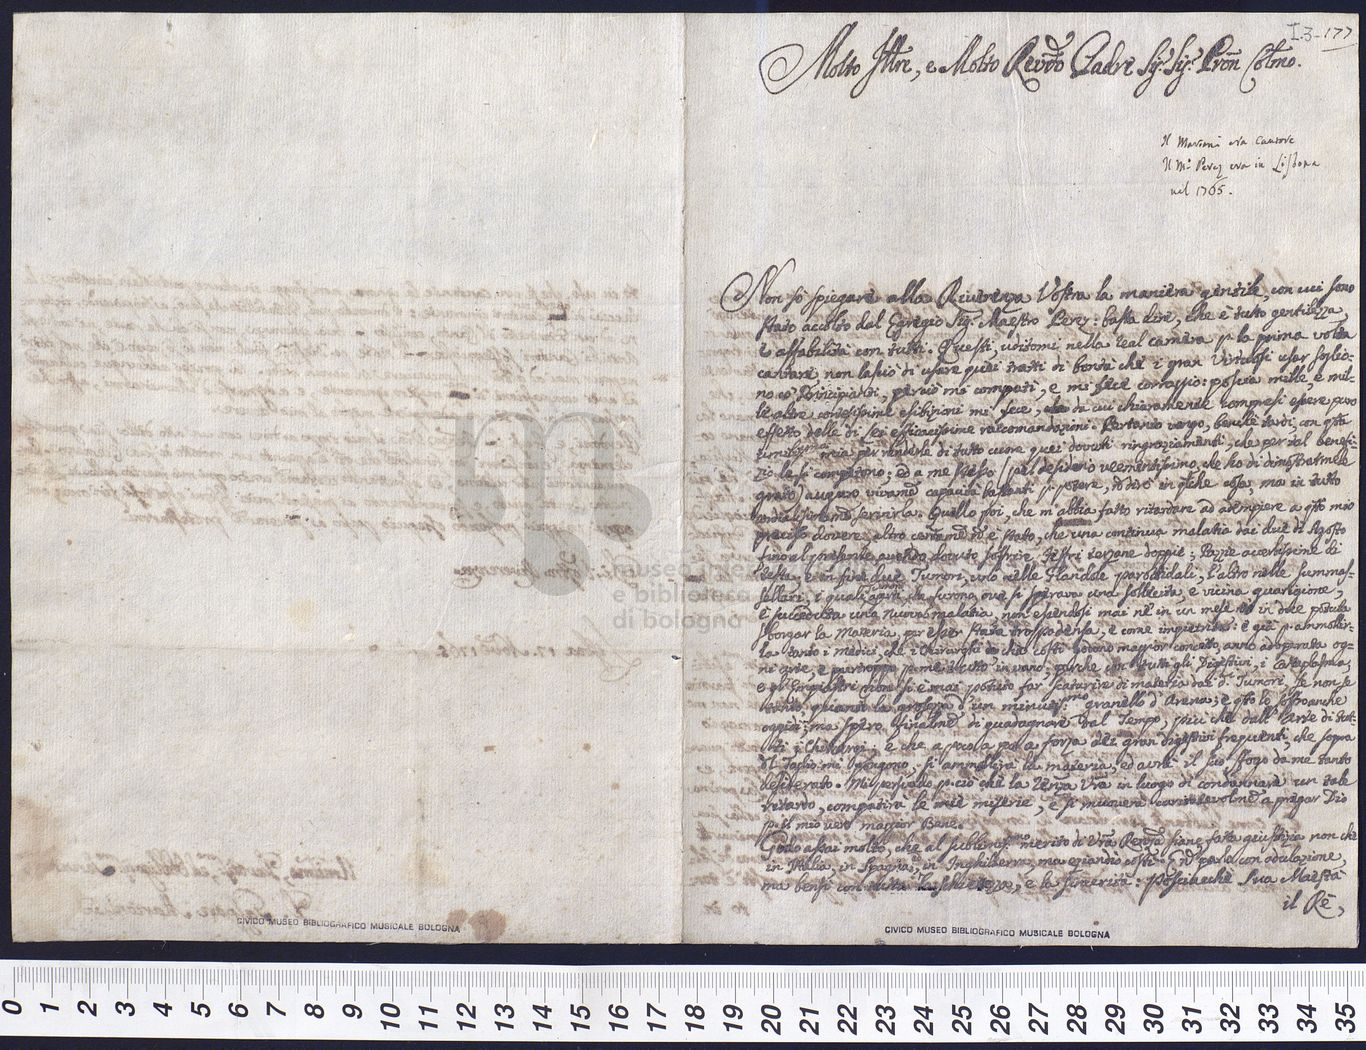 I.3-177
Molto Illre, e Molto Revdo Padre Sigr. Sigr. Pron Colmo.
Il Mariani era Cantore
Il Mo Perez era in Lisbona
nel 1765.
Non sò spiegare alla Riverenza Vostra la maniera gentile, con cui sono
stato accolto dal Egregio Sigr. Maestro Perez: basta dire, che è tutto gentilezza,
e affabilità con tutti. Questi, uditomi nella Real camera p la prima volta
cantare non lasciò di usare quei tratti di bontà che i gran Virtuosi usar soglio-
no co' Principianti, perciò mi compatì, e mi fece corraggio: poscia mille, e mil-
le altre cortesissime esibizioni mi fece, da cui chiaramente compresi essere puro
effetto delle di Lei efficacissime raccomandazioni. Pertanto vengo, benchè tardi, con qsta
mia per renderle di tutto cuore quei dovuti ringraziamenti, che per tal benefi-
zio le si competono; ed a me stesso (pel desiderio veementissimo, che ho di dimostrarmele
grato) auguro vivamte capacità bastanti p potere, nō dirò in qlche cosa, ma in tutto
servirla. Quello poi, che m'abbia fatto ritardare ad adempiere a qsto mio
preciso dovere, altro certamte nō è stato, che una continua malatia dai due di Agosto
fino al presente avendo dovuto soffrire terzane doppie; Doglie acerbissime di
testa, e in fine due Tumori, uno nelle Glandole parottidali, l'altro nelle summas-
sellari, i quali aperti che furono, ove si sperava una sollecita, e vicina guarigione,
è succeduta una nuova malatia non essendosi mai nè in un mese nè in due potuta
sborgar la Materia, per esser stata troppo densa, e come impietrita: e quì p ammollir-
la tanto i medici, che i Chirurghi in chui costì hanno maggior concetto, anno adoparata og-
ni arte, e purtroppo p me tutto in vano, perche con tutti gli Digestivi, i Cataplasma,
e gl'Impiastri non si è mai potuto far scaturire di materia dai di Tumori, se non se
tanto, quanto la grossezza d'un minutissmo granello d'Arena; e qsto lo soffro anche
oggidì; ma spero finalmte di guadagnare dal Tempo, più che dall'Arte di tut-
ti i Chirurgi; e che a poco a poco a forza dei gran digestivi frequenti, che sopra
il Taglio mi pongono, si ammollirà la materia, ed avrà il suo sfogo da me tanto
desiderato. Mi persuado p ciò che la Renza Vra in luogo di condannare un tale
ritardo, compatirà le mie miserie, e si muoverà caritatevolmte a pregar Dio
p il mio vero maggior Bene.
Godo assai molto, che al sublimissmo merito di Vra Renza siane fatta giustizia non che
in Italia, in Spagna, in Inghilterra, ma eziandio costì: nō parlo con adulazione,
ma bensì con tutta la schiettezza, e la sincerità: posciacchè Sua Maestà
il Rè,
museo internazionale
e biblioteca
di bologna
CIVICO MUSEO BIBLIOGRAFICO MUSICALE BOLOGNA
CIVICO MUSEO BIBLIOGRAFICO MUSICALE BOLOGNA
0 1 2 3 4 5 6 7 8 9 10 11 12 13 14 15 16 17 18 19 20 21 22 23 24 25 26 27 28 29 30 31 32 33 34 35